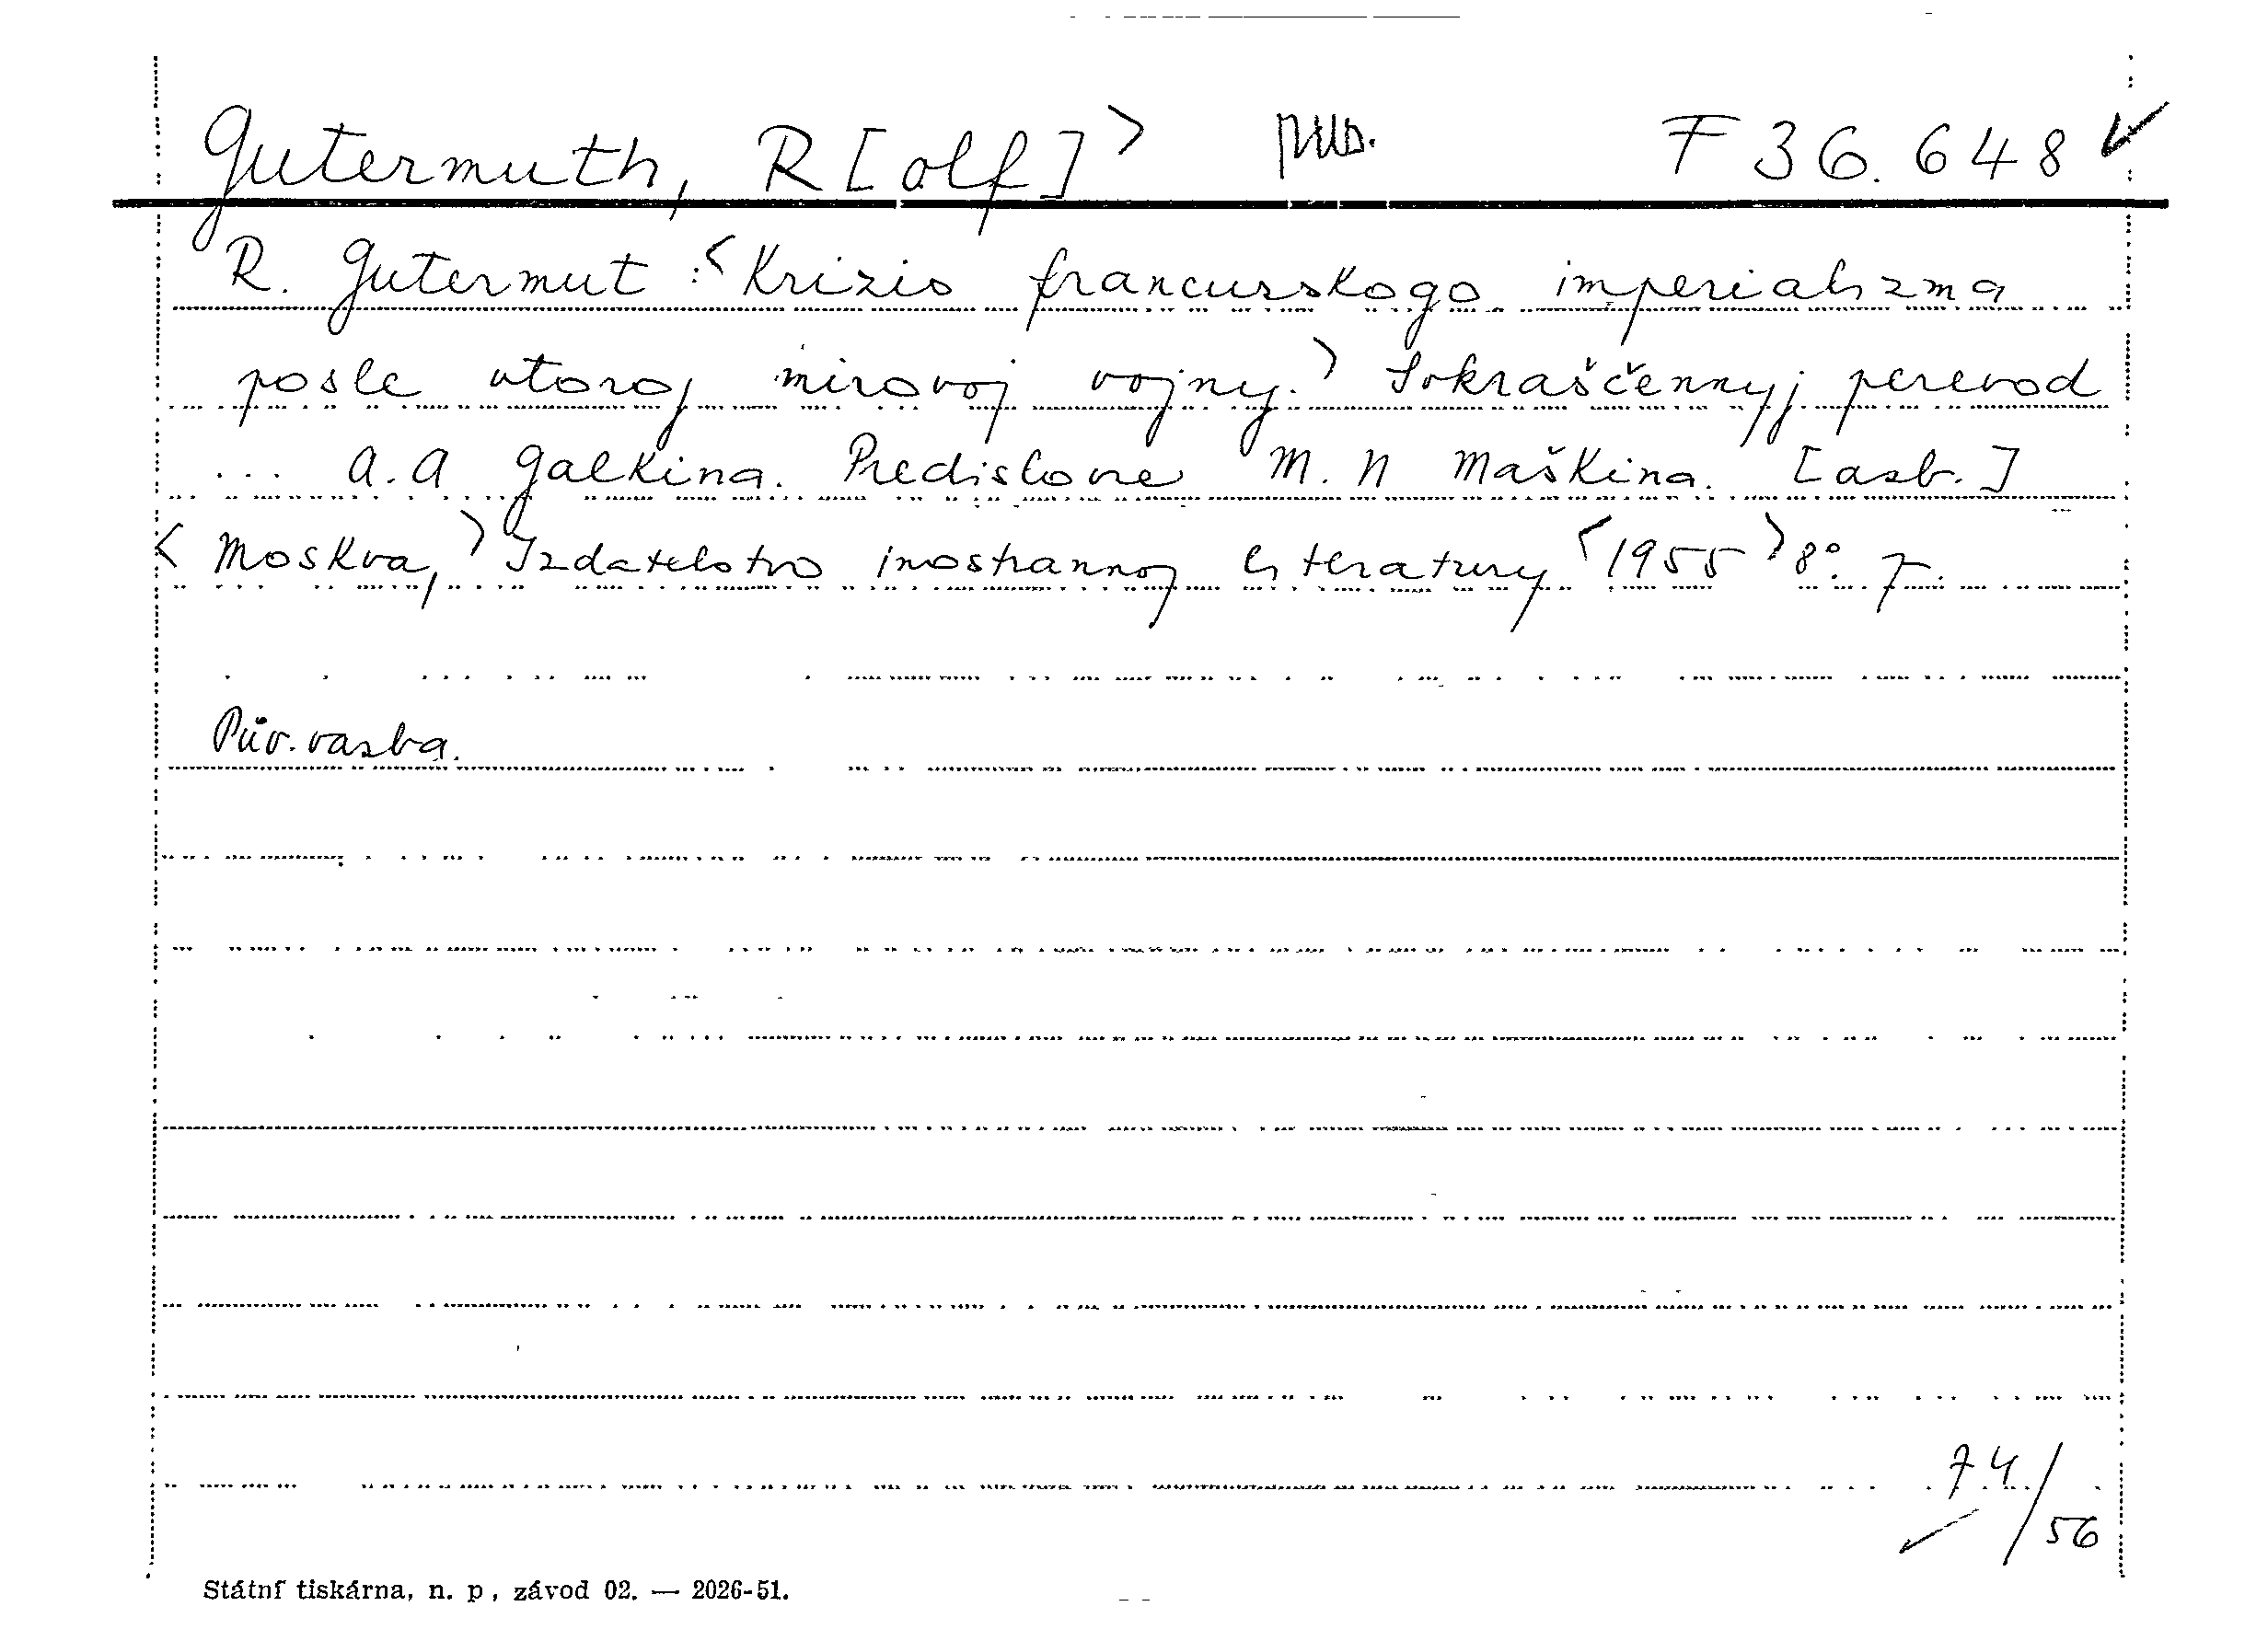 Gutermuth, R[olf]> F 36.648
R. Gutermut :<Krizis francuzskogo imperializma
posle vtoroj mirovoj vojny.> Sokraščennyj perevod
... A.A Galkina. Predislovie M.N Maškina. [azb.]
<Moskva,> Izdatelstvo inostrannoj literatury <1955> 8°. 7.
Pův. vazba.
74/56
Státní tiskárna, n. p., závod 02. — 2026-51.